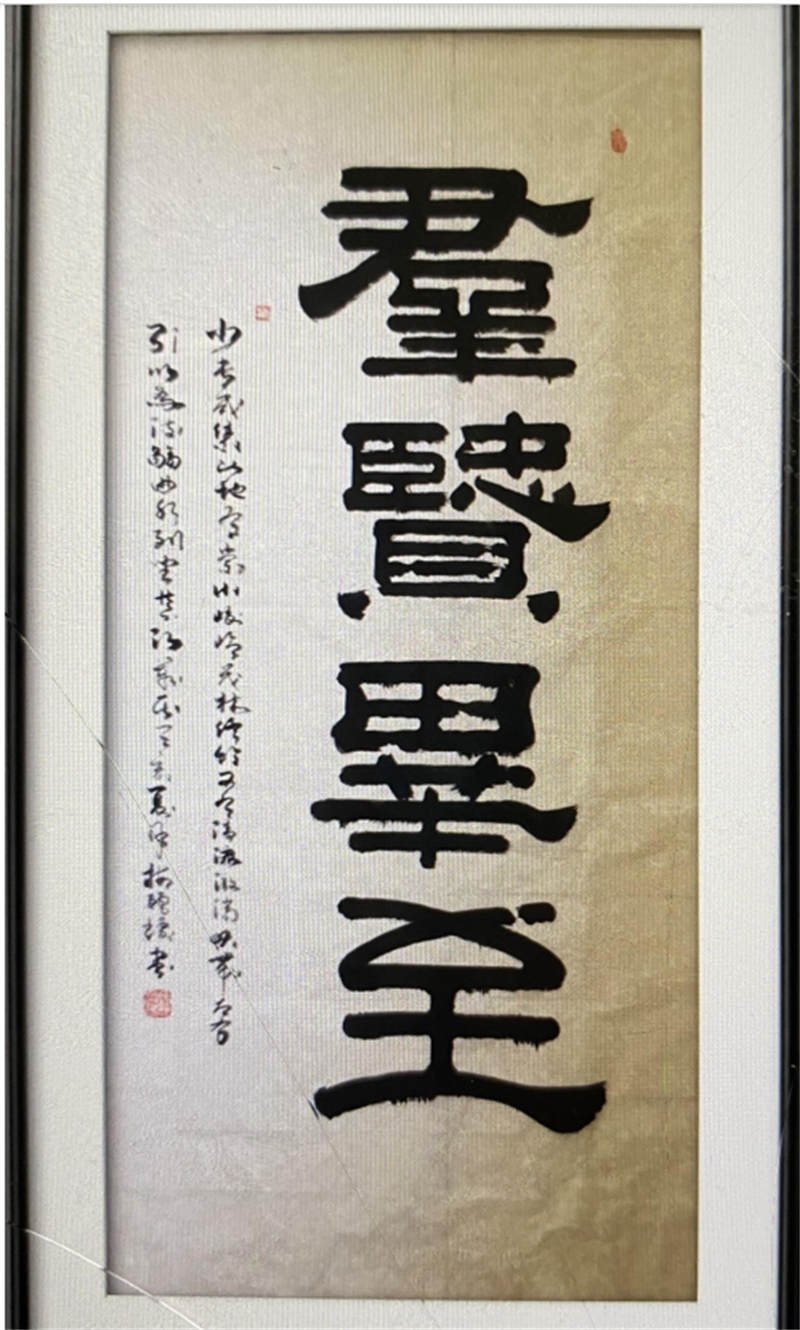 羣贒畢至
少長咸集此地有崇山峻領茂林修竹又有清流激湍映帶左右
引以為流觴曲水列坐其次 書